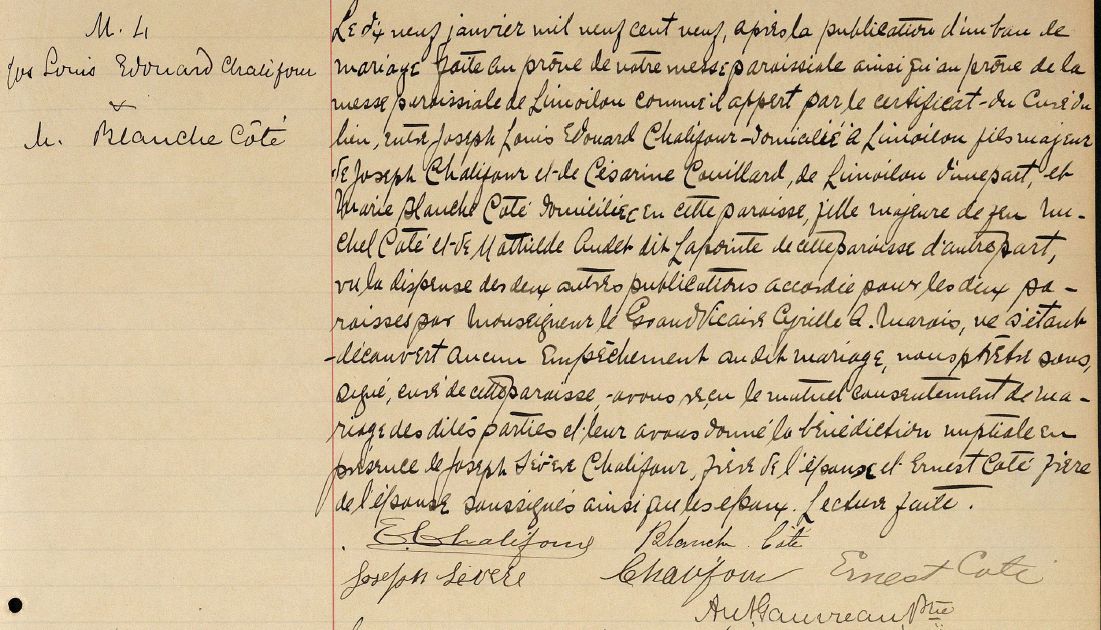 M. 4
Jos Louis Edouard Chalifour
&
M. Blanche Côté
Le dix neuf janvier mil neuf cent neuf, après la publication d'un ban de
mariage faite au prône de notre messe paroissiale ainsi qu'au prône de la
messe paroissiale de Limoilou comme il appert par le certificat du Curé du
lieu, entre Joseph Louis Edouard Chalifour domicilié à Limoilou fils majeur
de Joseph Chalifour et de Césarine Couillard, de Limoilou d'une part, et
Marie Blanche Coté domiciliée en cette paroisse, fille majeure de feu Mi-
chel Coté et de Mathilde Audet dit Lapointe de cette paroisse d'autre part,
vu la dispense des deux autres publications accordée pour les deux pa-
roisses par Monseigneur le Grand Vicaire Cyrille A. Marois, ne s'étant
découvert aucun Empêchement au dit mariage, nous prêtre sous,
signé, curé de cette paroisse, avons reçu le mutuel consentement de ma-
riage des dites parties et leur avons donné la bénédiction nuptiale en
présence de Joseph Sévère Chalifour, frère de l'époux et Ernest Coté frère
de l'épouse soussignés ainsi que les époux. Lecture faite.
E. Chalifour Blanche Côté
Joseph Sévère Chalifour Ernest Coté
Ant Gauvreau, Ptre